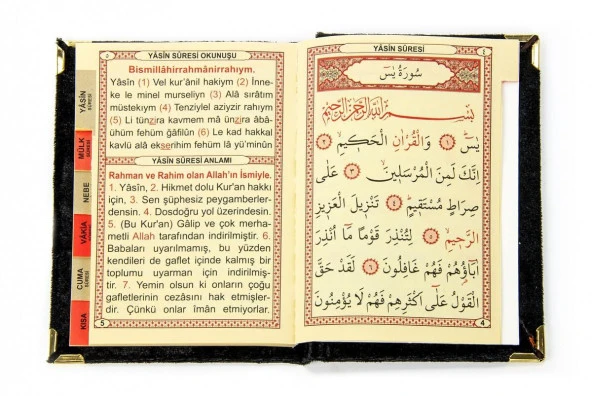 YÂSİN SÛRESİ OKUNUŞU
Bismillâhirrahmânirrahıym.
Yâsîn (1) Vel kur'ânil hakiym (2) İnne-
ke le minel murseliyn (3) Alâ sırâtım
müstekıym (4) Tenziylel aziyzir rahıym
(5) Li tünzira kavmem mâ ünzira âbâ-
ühüm fehüm ğâfilûn (6) Le kad hakkal
kavlü alâ ekserihim fehüm lâ yü'minûn
YÂSİN SÛRESİ ANLAMI
Rahman ve Rahim olan Allah'ın İsmiyle.
1. Yâsîn, 2. Hikmet dolu Kur'an hakkı
için, 3. Sen şüphesiz peygamberler-
densin. 4. Dosdoğru yol üzerindesin.
5. (Bu Kur'an) Gâlip ve çok merha-
metli Allah tarafından indirilmiştir. 6.
Babaları uyarılmamış, bu yüzden
kendileri de gaflet içinde kalmış bir
toplumu uyarman için indirilmiş-
tir. 7. Yemin olsun ki onların çoğu
gafletlerinin cezâsını hak etmişler-
dir. Çünkü onlar îmân etmiyorlar.
5
YÂSİN SÛRESİ
MÜLK SÛRESİ
NEBE
VÂKIA
CUMA SÛRESİ
KISA
YÂSİN SÛRESİ
٤
سُورَةُ يٰسٓ
بِسْمِ اللّٰهِ الرَّحْمٰنِ الرَّحِيمِ
يٰسٓ ﴿١﴾ وَالْقُرْاٰنِ الْحَكِيمِ ﴿٢﴾
اِنَّكَ لَمِنَ الْمُرْسَلِينَ ﴿٣﴾ عَلٰى
صِرَاطٍ مُسْتَقِيمٍ ﴿٤﴾ تَنْزِيلَ الْعَزِيزِ
الرَّحِيمِ ﴿٥﴾ لِتُنْذِرَ قَوْمًا مَٓا اُنْذِرَ
اٰبَٓاؤُ۬هُمْ فَهُمْ غَافِلُونَ ﴿٦﴾ لَقَدْ حَقَّ
الْقَوْلُ عَلٰٓى اَكْثَرِهِمْ فَهُمْ لَا يُؤْمِنُونَ
4